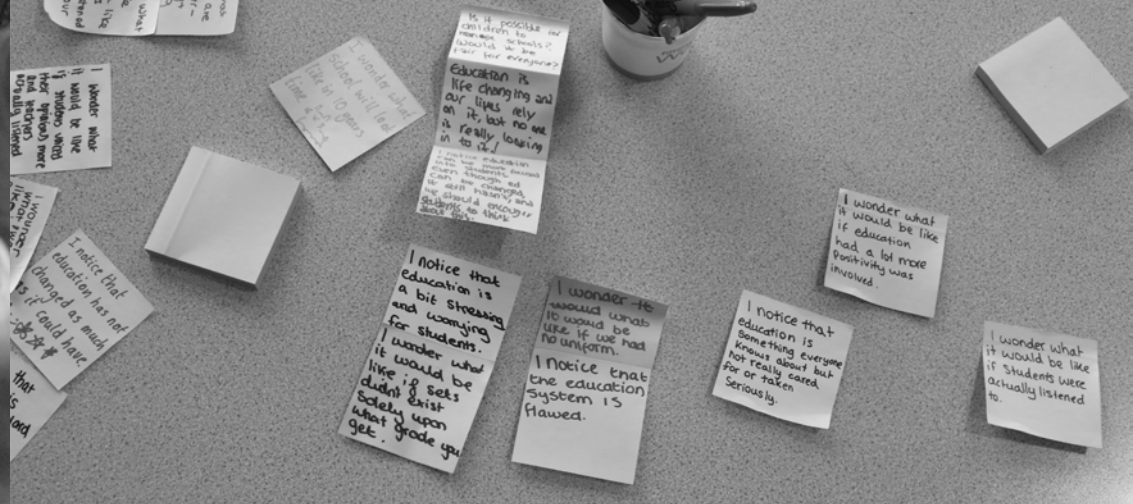 are
what
like
I wonder what
it would be like
if students voices
and teachers
their opinions more
actually listened
I wonder what
school will look
like in 10 years
time
Is it possible for
children to
schools?
Would it be
fair for everyone?
Education is
life changing and
our lives rely
on it, but no one
is really looking
in to it!
I notice education
can be more
students
even though ed
can be changed,
it still hasn't, and
we should encouger
students to think
about this.
I wounder
what
like
I notice that
education has not
changed as much
as it could have.
that
is
I notice that
education is
a bit stressing
and worrying
for students.
I wonder what
it would be
like if sets
didn't exist
solely upon
what grade you
get.
I wonder
would what
it would be
like if we had
no uniform.
I notice that
the education
system is
flawed.
I notice that
education is
something everyone
knows about but
not really cared
for or taken
seriously.
I wonder what
it would be like
if education
had a lot more
positivity was
involved.
I wonder what
it would be like
if students were
actually listened
to.